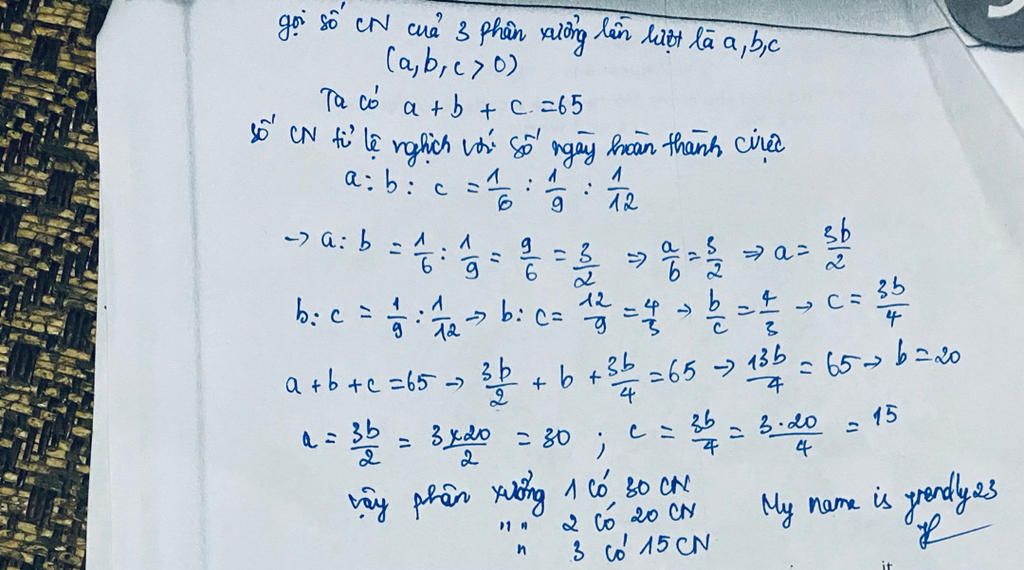 gọi số CN của 3 phân xưởng lần lượt là a,b,c
(a,b,c > 0)
Ta có a + b + c = 65
số CN tỉ lệ nghịch với số ngày hoàn thành việc
a : b : c = 1/6 : 1/9 : 1/12
→ a : b = 1/6 : 1/9 = 9/6 = 3/2 ⇒ a/b = 3/2 ⇒ a = 3b/2
b : c = 1/9 : 1/12 → b : c = 12/9 = 4/3 → b/c = 4/3 → c = 3b/4
a + b + c = 65 → 3b/2 + b + 3b/4 = 65 → 13b/4 = 65 → b = 20
a = 3b/2 = 3×20/2 = 30 ; c = 3b/4 = 3·20/4 = 15
Vậy phân xưởng 1 có 30 CN
" " 2 có 20 CN
" 3 có 15 CN
My name is yrendly23
it